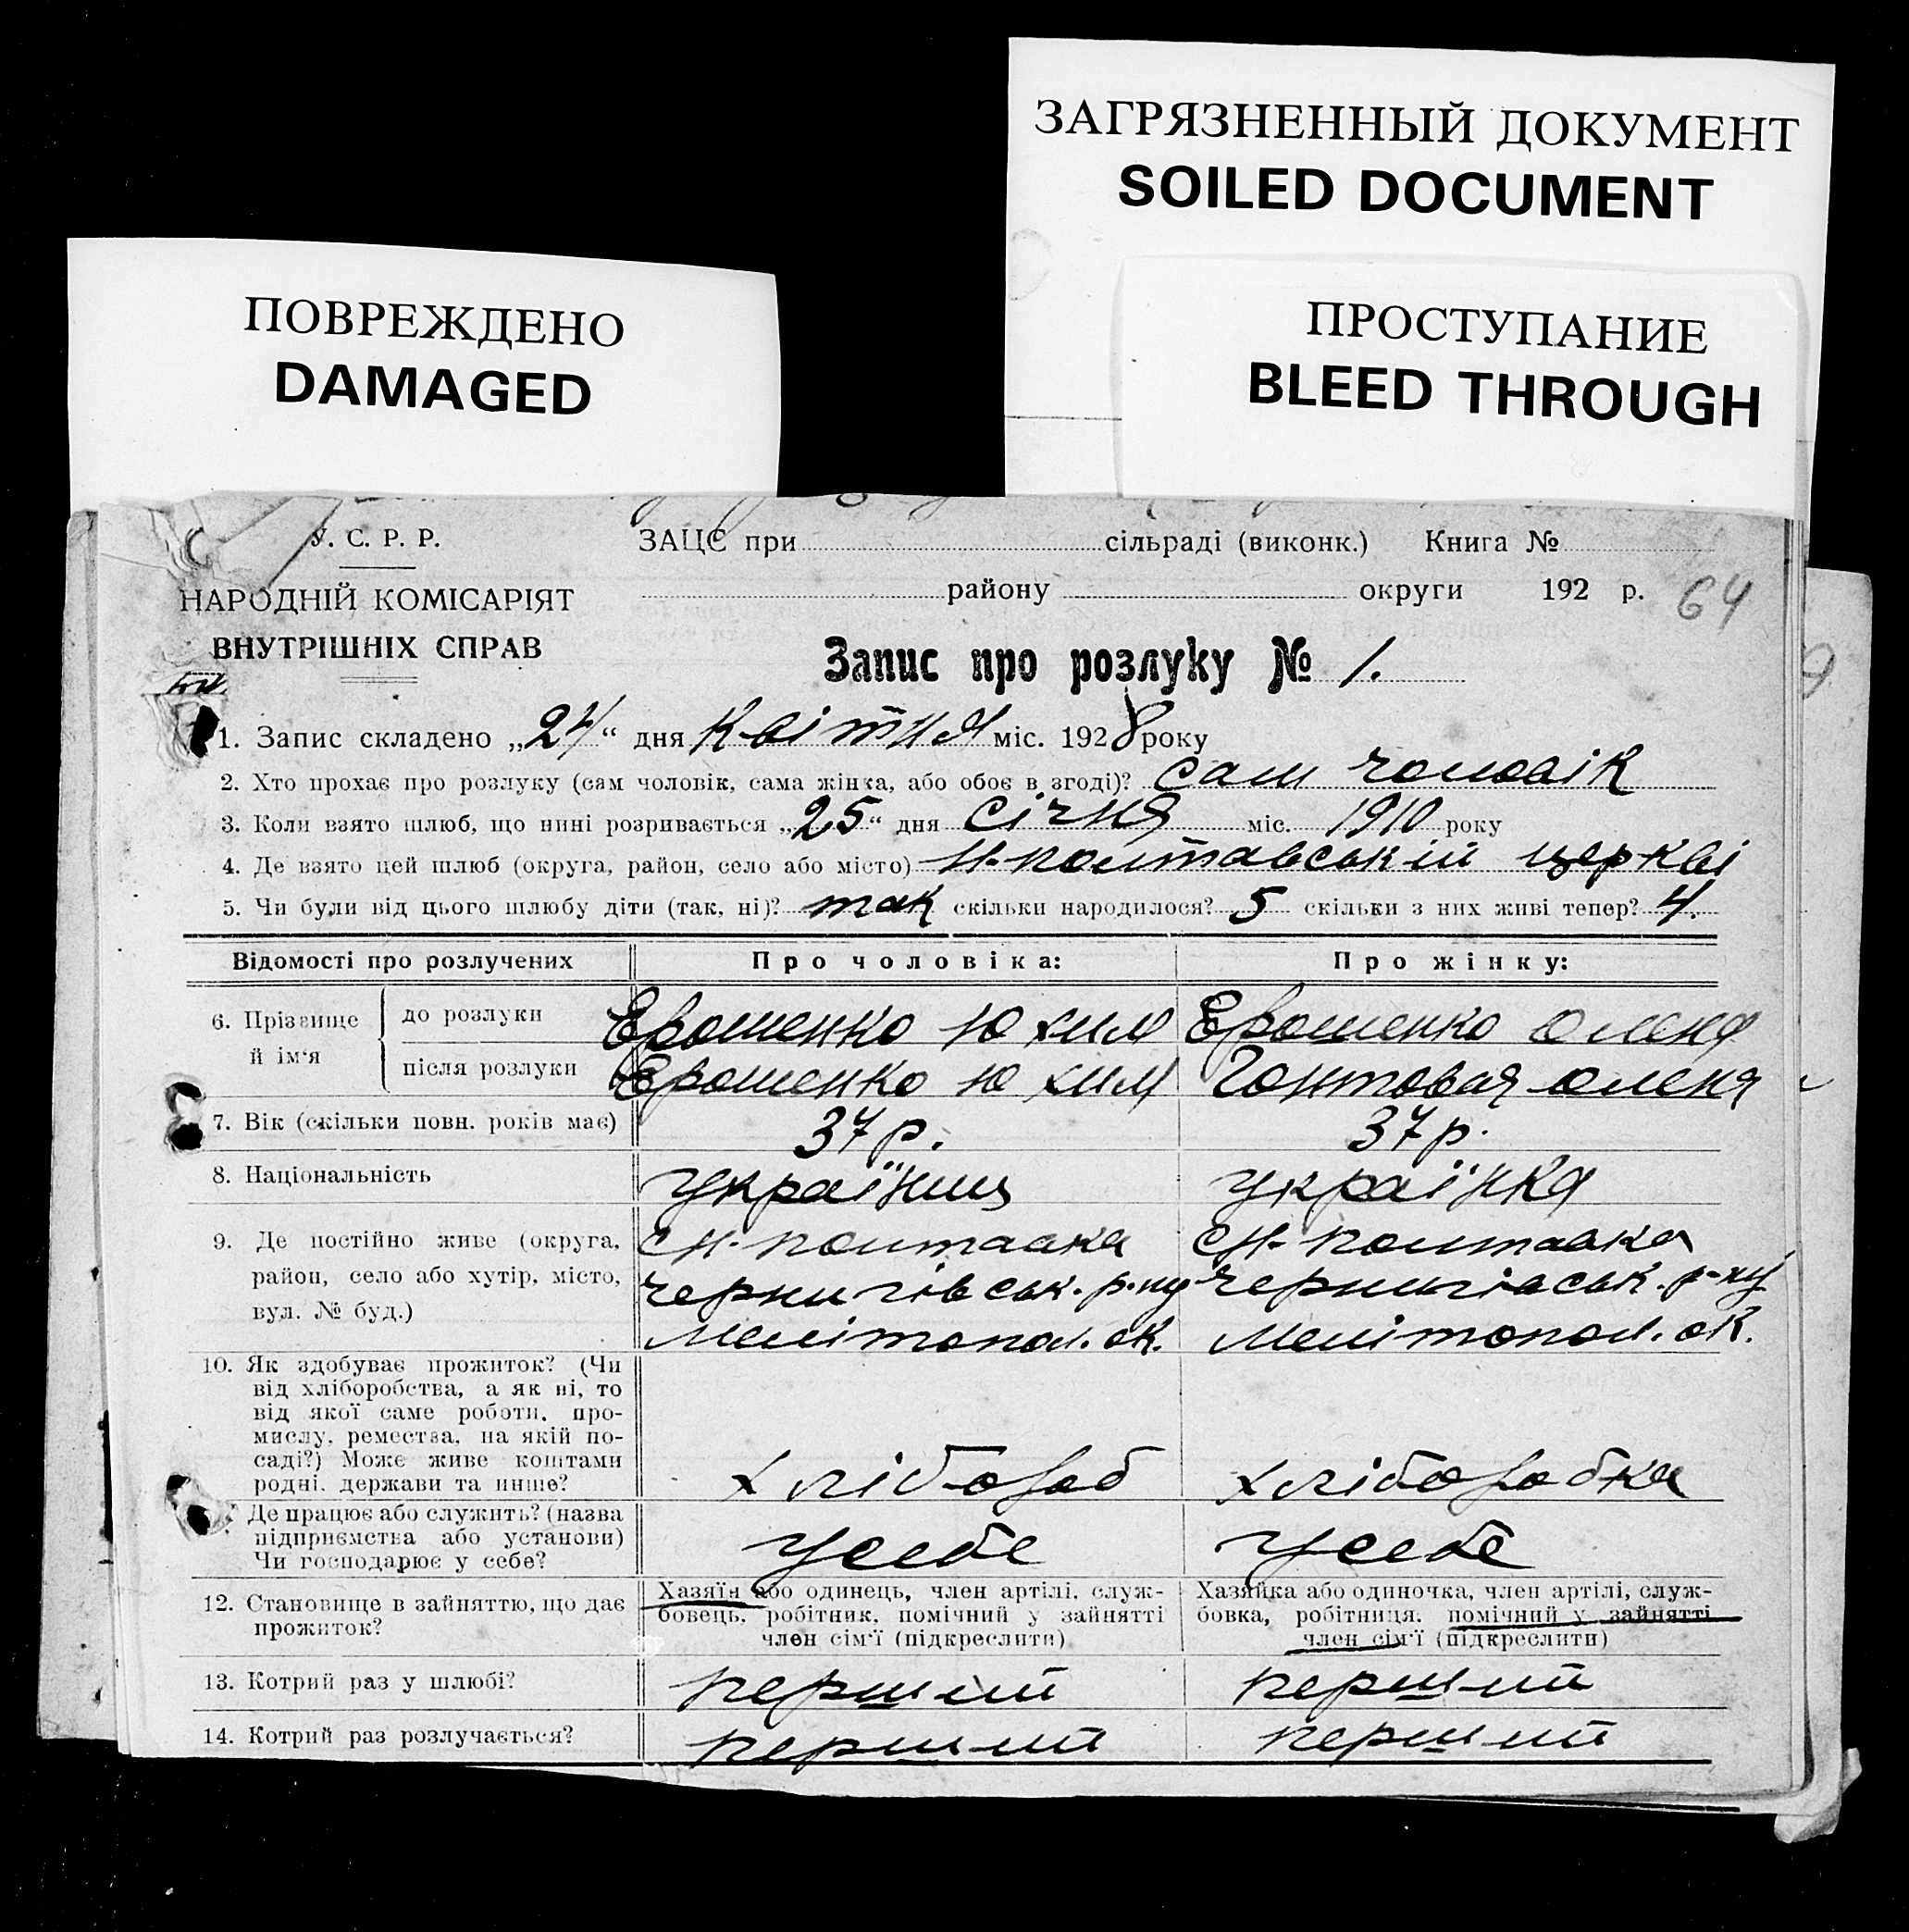 ЗАГРЯЗНЕННЫЙ ДОКУМЕНТ
SOILED DOCUMENT
ПОВРЕЖДЕНО
DAMAGED
ПРОСТУПАНИЕ
BLEED THROUGH
У. С. Р. Р.
ЗАЦС при сільраді (виконк.) Книга №
НАРОДНІЙ КОМІСАРІЯТ
району округи 192 р. 64
ВНУТРІШНІХ СПРАВ
Запис про розлуку № 1.
1. Запис складено „24“ дня Квітня міс. 1928 року
2. Хто прохає про розлуку (сам чоловік, сама жінка, або обоє в згоді)? сам чоловік
3. Коли взято шлюб, що нині розривається „25“ дня січня міс. 1910 року
4. Де взято цей шлюб (округа, район, село або місто) Н-полтавській церкві
5. Чи були від цього шлюбу діти (так, ні)? так скільки народилося? 5 скільки з них живі тепер? 4.
Відомості про розлучених
Про чоловіка:
Про жінку:
6. Прізвище й ім‘я
до розлуки
Ерошенко Юхим
Ерошенко Олена
після розлуки
Ерошенко Юхим
Гонтовая Олена
7. Вік (скільки повн. років має)
37 р.
37 р.
8. Національність
Українець
Українка
9. Де постійно живе (округа,
район, село або хутір, місто,
вул. № буд.)
с Н-полтавка
чернигівськ. р-ну
Мелітопол. ок.
с Н-полтавка
чернигівськ. р-ну
Мелітопол. ок.
10. Як здобуває прожиток? (Чи
від хліборобства, а як ні, то
від якої саме роботи, про-
мислу, ремества, на якій по-
саді?) Може живе коштами
родні, держави та инше?
хлібороб
хліборобка
Де працює або служить? (назва
підприємства або установи)
Чи господарює у себе?
У себе
У себе
12. Становище в зайняттю, що дає
прожиток?
Хазяїн або одинець, член артілі, служ-
бовець, робітник, помічний у зайнятті
член сім‘ї (підкреслити)
Хазяйка або одиночка, член артілі, служ-
бовка, робітниця, помічний у зайнятті
член сім‘ї (підкреслити)
13. Котрий раз у шлюбі?
перший
перший
14. Котрий раз розлучається?
перший
перший